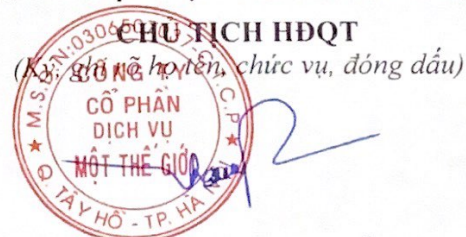 CHỦ TỊCH HĐQT
(Ký, ghi rõ họ tên, chức vụ, đóng dấu)
CÔNG TY
CỔ PHẦN
DỊCH VỤ
MỘT THẾ GIỚI
Q. TÂY HỒ - TP. HÀ